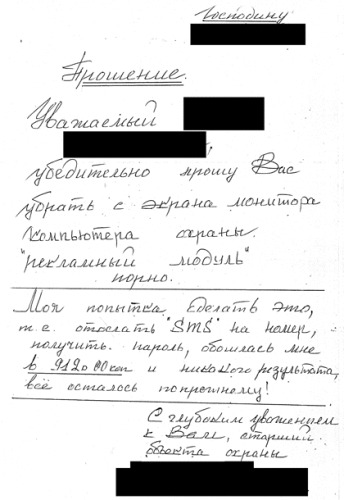 Господину
Прошение.
Уважаемый
,
убедительно прошу Вас
убрать с экрана монитора
компьютера охраны.
"рекламный модуль"
порно.
Моя попытка сделать это,
т.е. отослать "SMS" на номер,
получить. пароль, обошлась мне
в 912р 00коп и никакого результата,
всё осталось попрежнему!
С глубоким уважением
к Вам, старший
объекта охраны